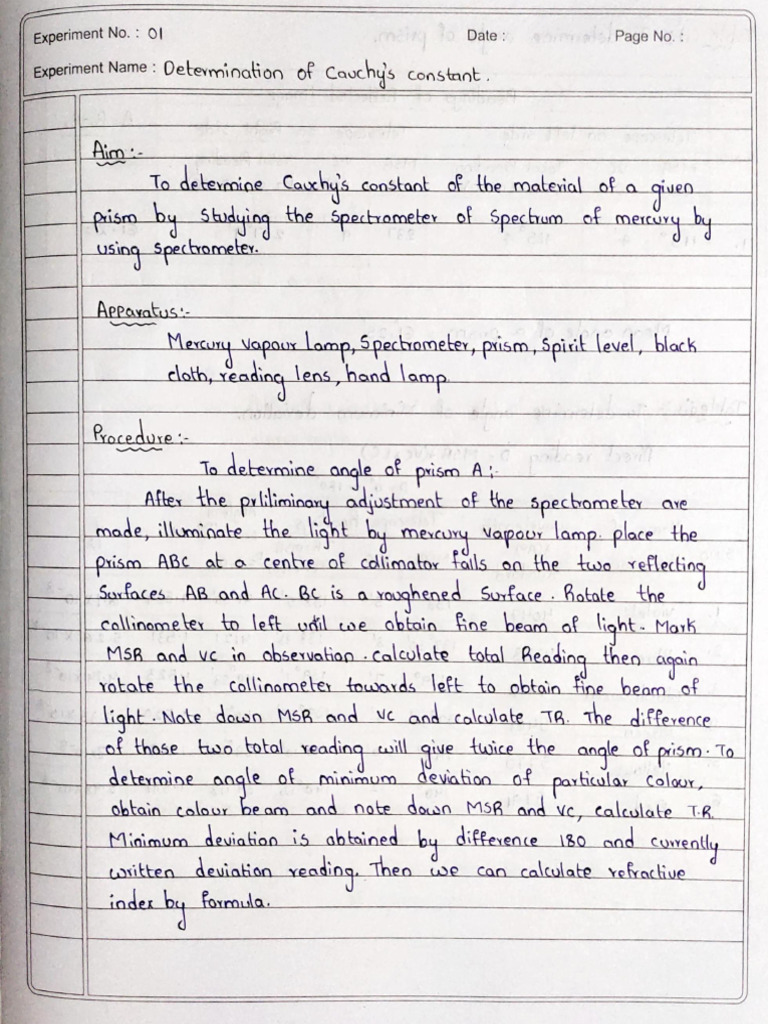 Experiment No. : 01 Date : Page No. :
Experiment Name : Determination of Cauchy's constant.
Aim :-
To determine Cauchy's constant of the material of a given
prism by studying the spectrometer of spectrum of mercury by
using spectrometer.
Apparatus:-
Mercury vapour lamp, Spectrometer, prism, Spirit level, black
cloth, reading lens, hand lamp.
Procedure :-
To determine angle of prism A :-
After the prliliminary adjustment of the spectrometer are
made, illuminate the light by mercury vapour lamp. place the
prism ABC at a centre of collimator falls on the two reflecting
Surfaces. AB and AC. BC is a roughened Surface. Rotate the
collinometer to left until we obtain fine beam of light. Mark
MSR and VC in observation. Calculate total Reading then again
rotate the collinometer towards left to obtain fine beam of
light. Note down MSR and VC and calculate TR. The difference
of those two total reading will give twice the angle of prism. To
determine angle of minimum deviation of particular colour,
obtain colour beam and note down MSR and VC, calculate T.R.
Minimum deviation is obtained by difference 180 and currently
written deviation reading. Then we can calculate refractive
index by formula.